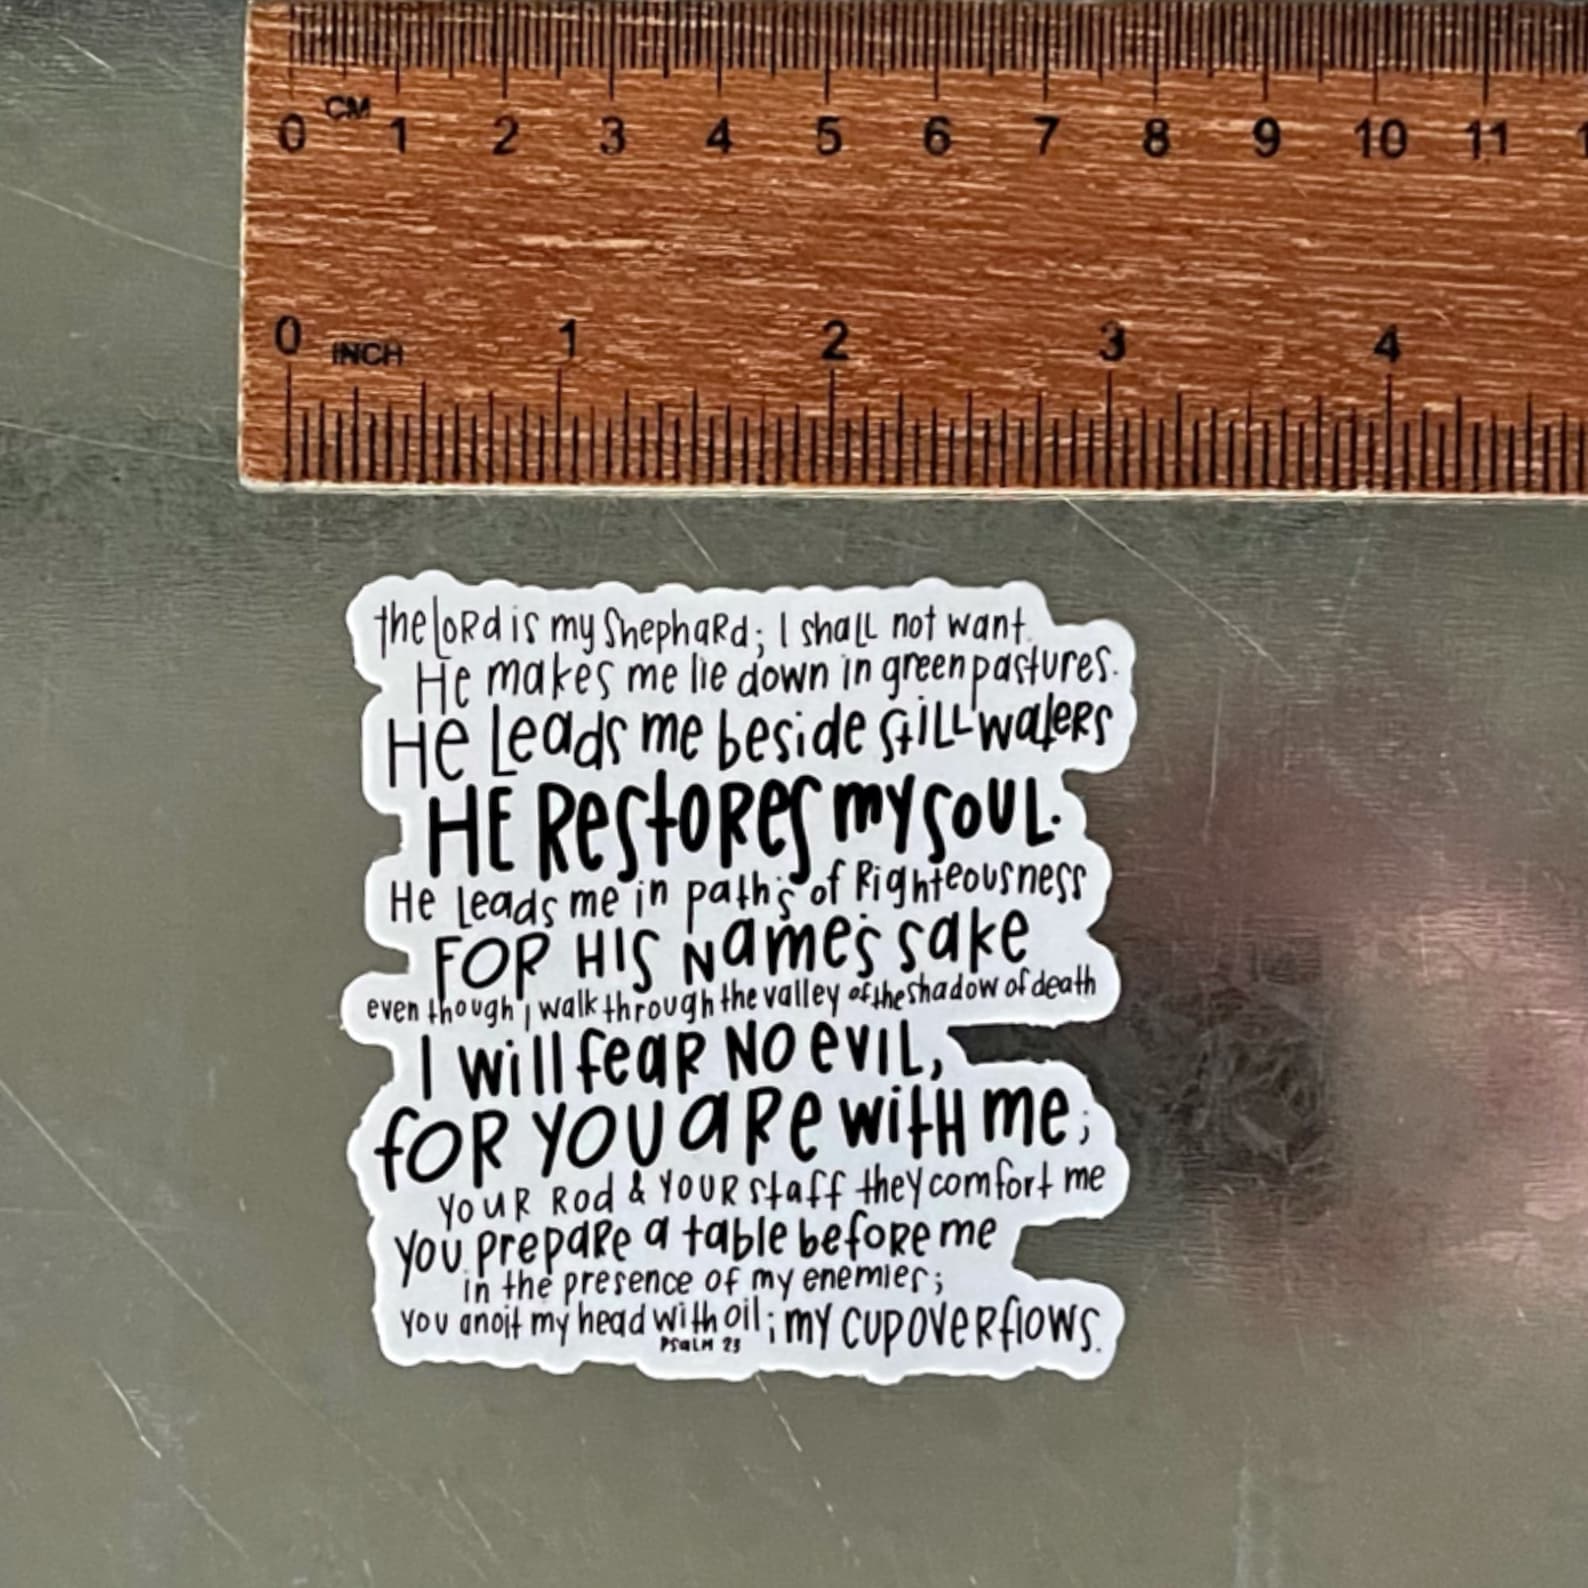 0 CM 1 2 3 4 5 6 7 8 9 10 11
0 INCH 1 2 3 4
the LORD is my ShephaRd; I shaLL not want
He makes me lie down in green pastures.
He Leads me beside stiLL wateRs
HE RestoRes my soUL.
He Leads me in paths of Righteousness
FOR HIS Name's sake
even though i walk through the valley of the shadow of death
I will feaR NO eviL,
foR YOU aRe witH me;
YouR Rod & YOUR staff they comfort me
You prepaRe a table befoRe me
in the presence of my enemies;
You anoit my head with oil; my CUP OVeRflows.
PSaLM 23